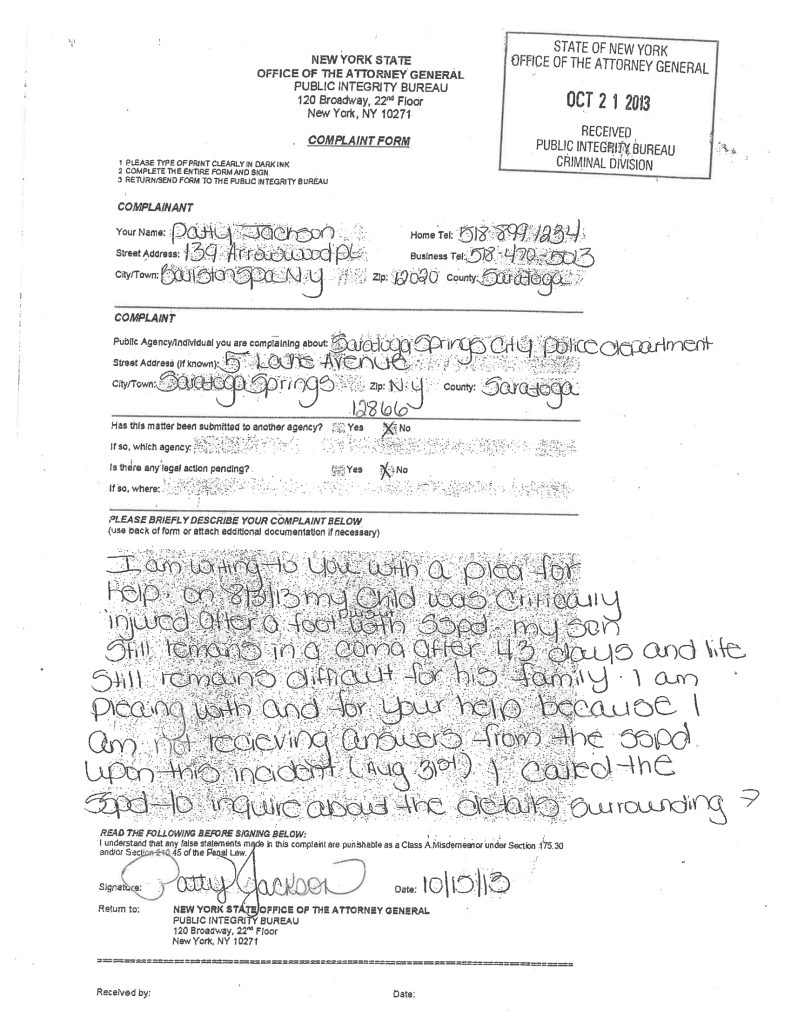 NEW YORK STATE
OFFICE OF THE ATTORNEY GENERAL
PUBLIC INTEGRITY BUREAU
120 Broadway, 22nd Floor
New York, NY 10271
COMPLAINT FORM
STATE OF NEW YORK
OFFICE OF THE ATTORNEY GENERAL
OCT 21 2013
RECEIVED
PUBLIC INTEGRITY BUREAU
CRIMINAL DIVISION
1 PLEASE TYPE OF PRINT CLEARLY IN DARK INK
2 COMPLETE THE ENTIRE FORM AND SIGN
3 RETURN/SEND FORM TO THE PUBLIC INTEGRITY BUREAU
COMPLAINANT
Your Name: Patty Jackson Home Tel: 518 899 1234
Street Address: 139 Arrowwood Pl Business Tel: 518-470-5013
City/Town: Ballston Spa N.y Zip: 12020 County: Saratoga
COMPLAINT
Public Agency/Individual you are complaining about: Saratoga Springs City Police department
Street Address (if known): 5 Lake Avenue
City/Town: Saratoga Springs Zip: N.y County: Saratoga
12866
Has this matter been submitted to another agency? Yes X No
If so, which agency:
Is there any legal action pending? Yes X No
If so, where:
PLEASE BRIEFLY DESCRIBE YOUR COMPLAINT BELOW
(use back of form or attach additional documentation if necessary)
I am writing to you with a plea for
help. on 8/31/13 my Child was Critically
injured after a foot pursuit with SSpd. my son
Still remains in a coma after 43 days and life
Still remains difficult for his family. I am
pleaing with and for your help because I
am not recieving answers from the SSpd
upon this incident (Aug 31st). I called the
SSpd to inquire about the details surrounding →
READ THE FOLLOWING BEFORE SIGNING BELOW:
I understand that any false statements made in this complaint are punishable as a Class A Misdemeanor under Section 175.30
and/or Section 210.45 of the Penal Law.
Signature: Patty Jackson Date: 10/15/13
Return to: NEW YORK STATE OFFICE OF THE ATTORNEY GENERAL
PUBLIC INTEGRITY BUREAU
120 Broadway, 22nd Floor
New York, NY 10271
Received by: Date: